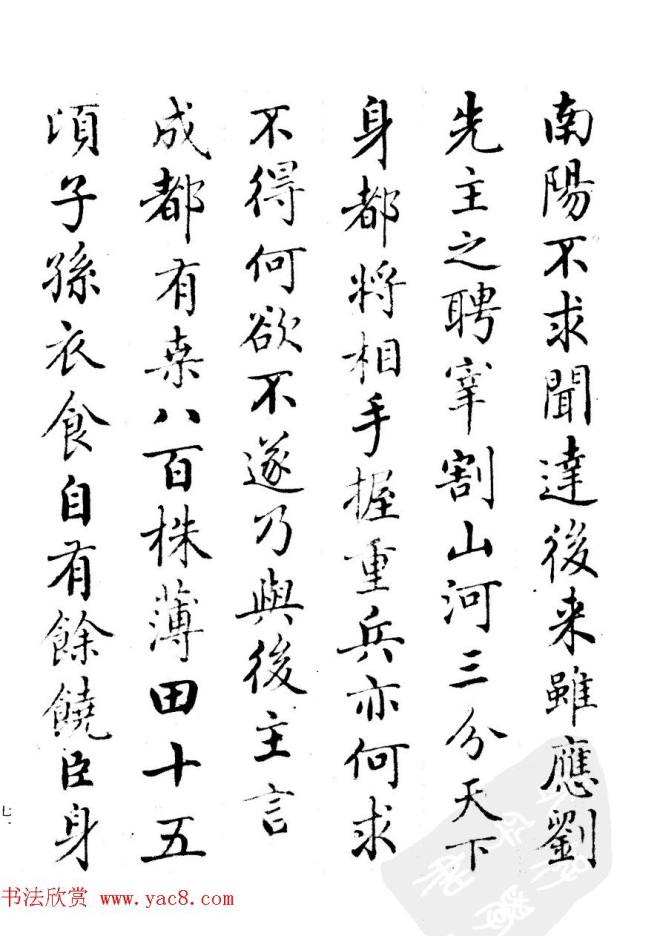 南陽不求聞達後来雖應劉
先主之聘宰割山河三分天下
身都將相手握重兵亦何求
不得何欲不遂乃與後主言
成都有桒八百株薄田十五
頃子孫衣食自有餘饒臣身
七
书法欣赏 www.yac8.com